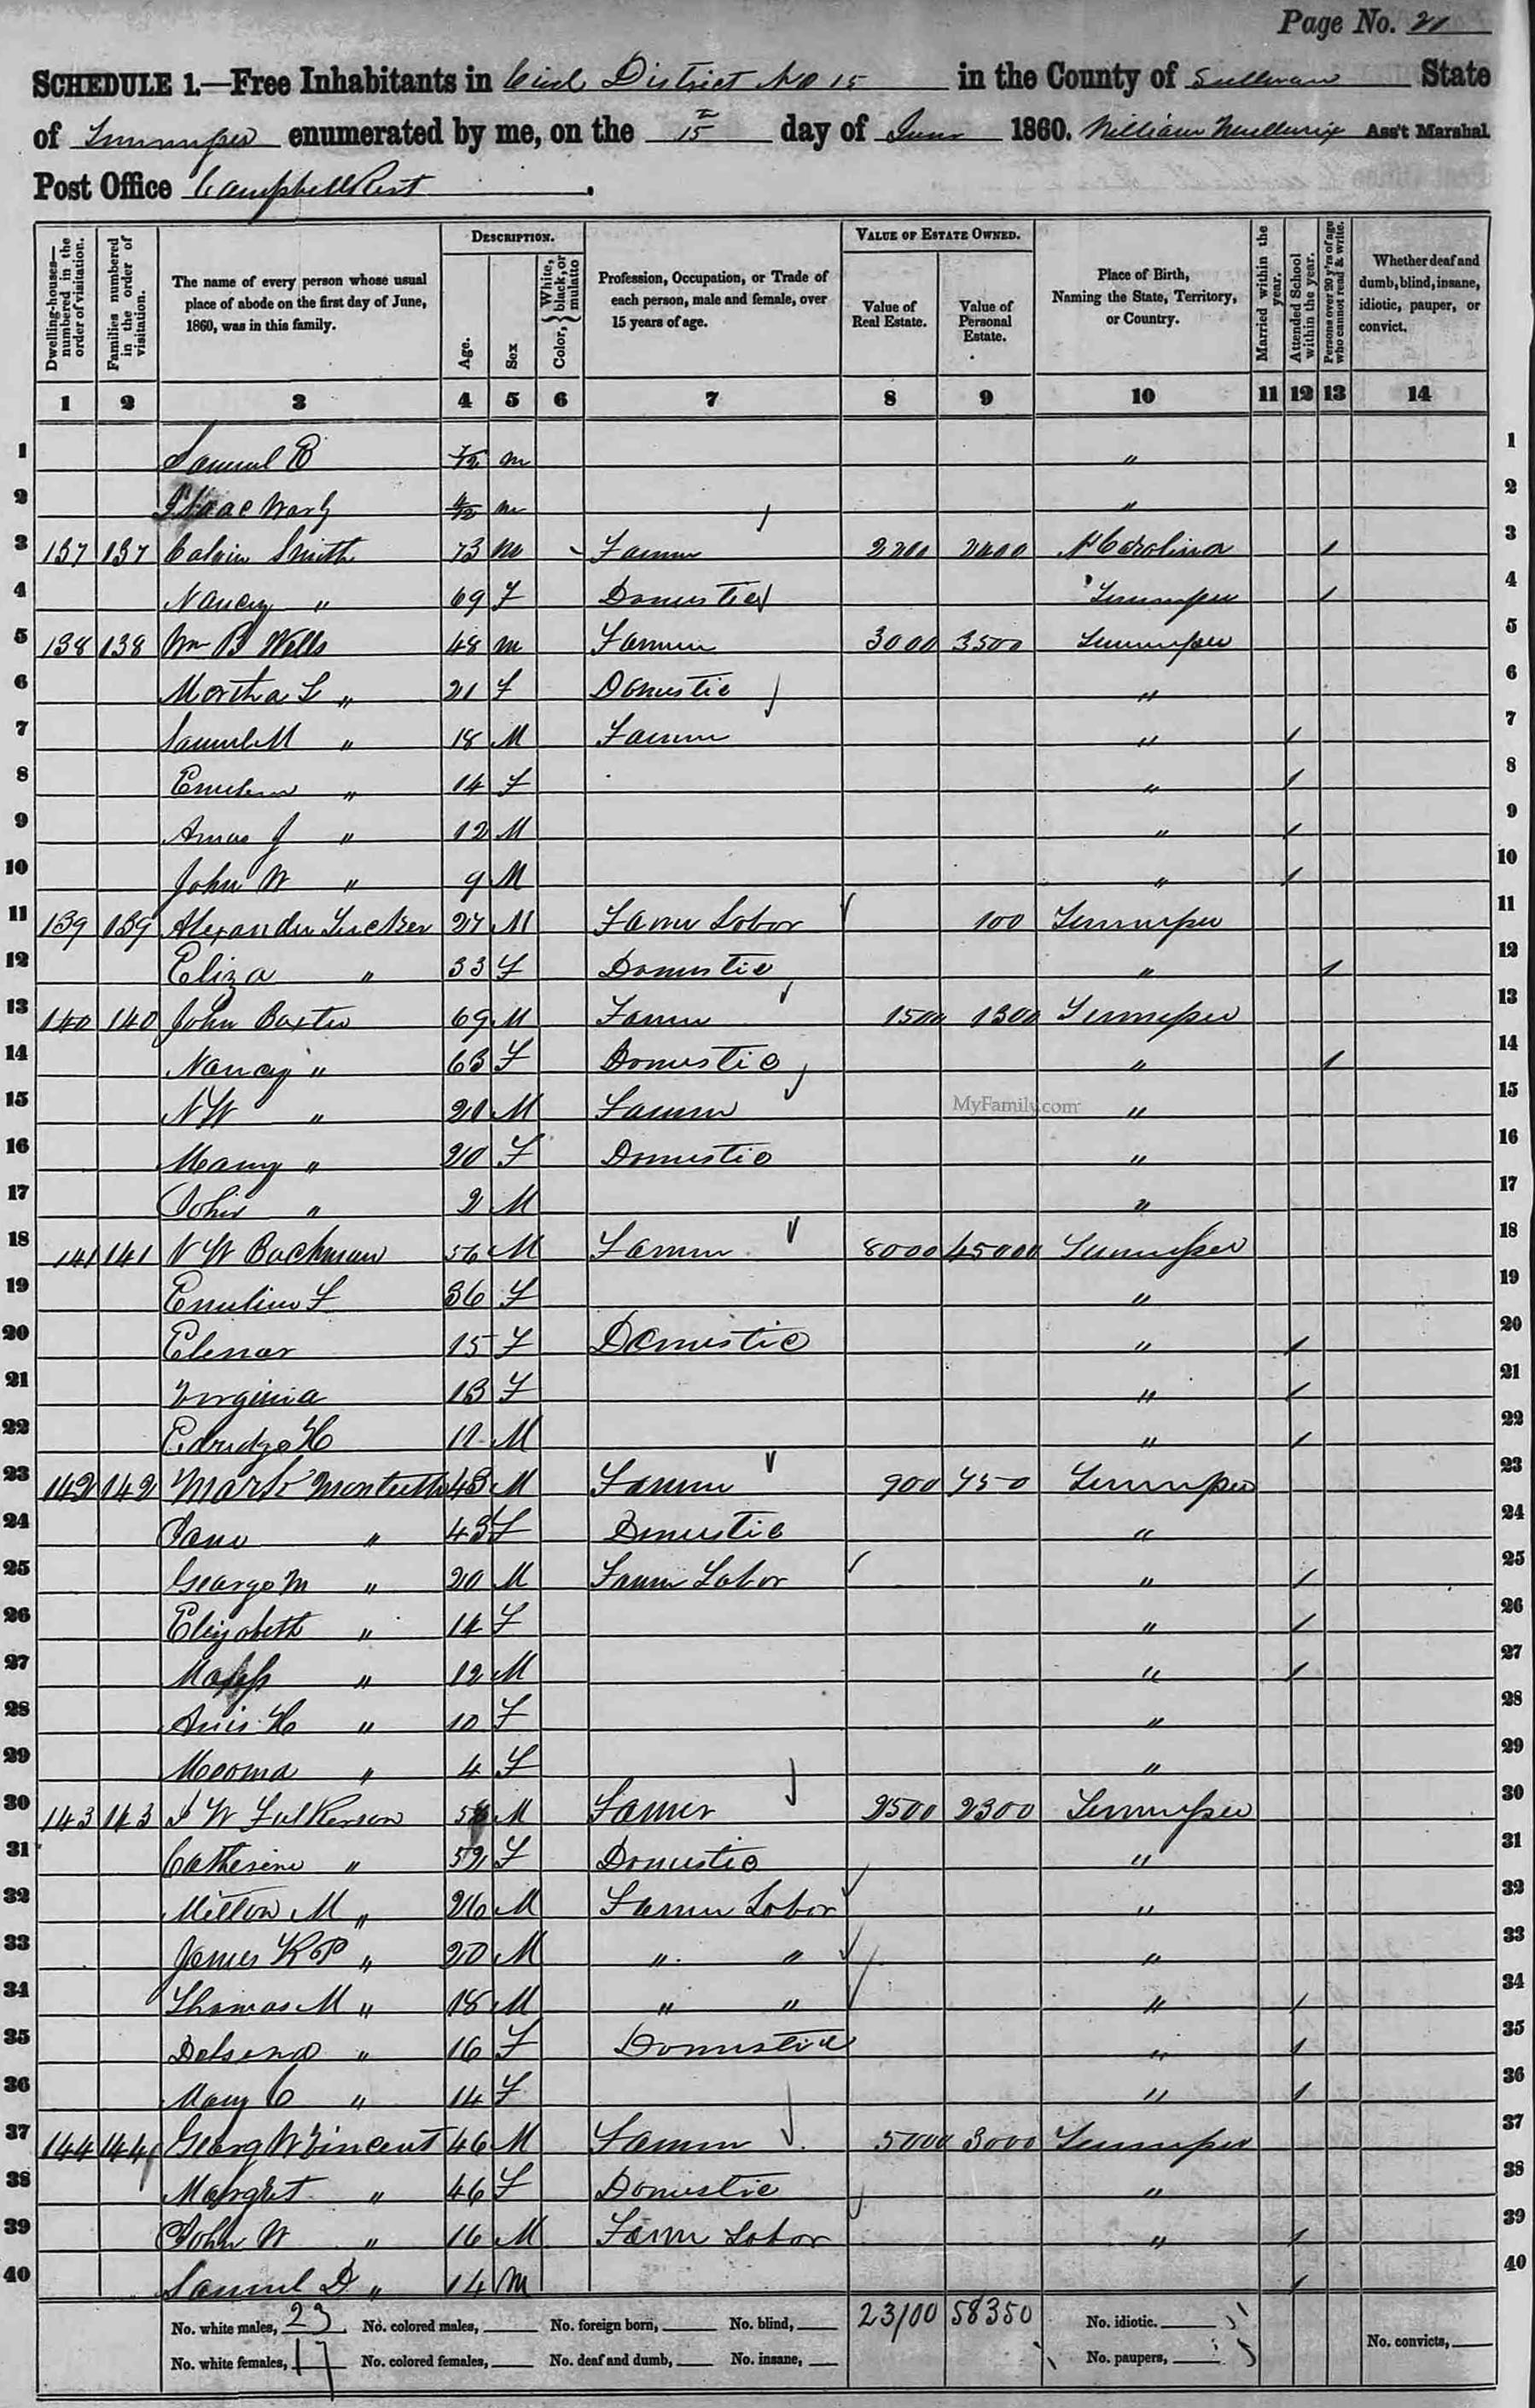 Page No. 21
SCHEDULE 1.—Free Inhabitants in Civil District No 15 in the County of Sullivan State
of Tennessee enumerated by me, on the 15 day of June 1860. William Ass't Marshal
Post Office
Dwelling-houses—numbered in the order of visitation.
Families numbered in the order of visitation.
The name of every person whose usual place of abode on the first day of June, 1860, was in this family.
DESCRIPTION.
Age.
Sex
Color, White, black, or mulatto
Profession, Occupation, or Trade of each person, male and female, over 15 years of age.
VALUE OF ESTATE OWNED.
Value of Real Estate.
Value of Personal Estate.
Place of Birth, Naming the State, Territory, or Country.
Married within the year.
Attended School within the year.
Persons over 20 y'rs of age who cannot read & write.
Whether deaf and dumb, blind, insane, idiotic, pauper, or convict.
1 2 3 4 5 6 7 8 9 10 11 12 13 14
1 Samuel m " 1
2 Isaac m " 2
3 137 137 Calvin Smith 73 m Farmer 2400 N Carolina / 3
4 Nancy " 69 F Domestic Tennessee / 4
5 138 138 Wm B Wells 48 m Farmer 3000 3500 Tennessee 5
6 Martha L " 21 F Domestic " 6
7 Samuel M " 18 M Farmer " / 7
8 " 14 F " / 8
9 J " 12 M " / 9
10 John W " 9 M " / 10
11 139 139 Alexander Tucker 27 M Farm Labor 100 Tennessee 11
12 Eliza " 33 F Domestic " / 12
13 140 140 John Baxter 69 M Farmer 1500 1300 Tennessee 13
14 Nancy " 63 F Domestic " / 14
15 N W " 21 M Farmer " 15
16 " 20 F Domestic " 16
17 John " 2 M " 17
18 141 141 N W Bachman 56 M Farmer 8000 45000 Tennessee 18
19 Emeline F 36 F " 19
20 Elenor 15 F Domestic " / 20
21 Virginia 13 F " / 21
22 M " / 22
23 142 142 Mark Monteeth 43 M Farmer 900 750 Tennessee 23
24 Jane " 43 F Domestic " 24
25 George M " 20 M Farm Labor " / 25
26 Elizabeth " 14 F " / 26
27 " 12 M " / 27
28 " 10 F " 28
29 " 4 F " 29
30 143 143 W Fulkerson M Farmer 2500 2300 Tennessee 30
31 Catherine " 52 F Domestic " 31
32 Milton M " 26 M Farm Labor " 32
33 James K P " 20 M " " " 33
34 Thomas M " 18 M " " " / 34
35 " 16 F Domestic " / 35
36 Mary C " 14 F " / 36
37 144 144 Georg W Vincent 46 M Farmer 5000 3000 Tennessee 37
38 Margret " 46 F Domestic " 38
39 John W " 16 M Farm Labor " / 39
40 Samuel D " 14 m / 40
MyFamily.com
No. white males, 23 No. colored males, No. foreign born, No. blind, 23100 58350 No. idiotic.
No. white females, 17 No. colored females, No. deaf and dumb, No. insane, No. paupers, No. convicts,